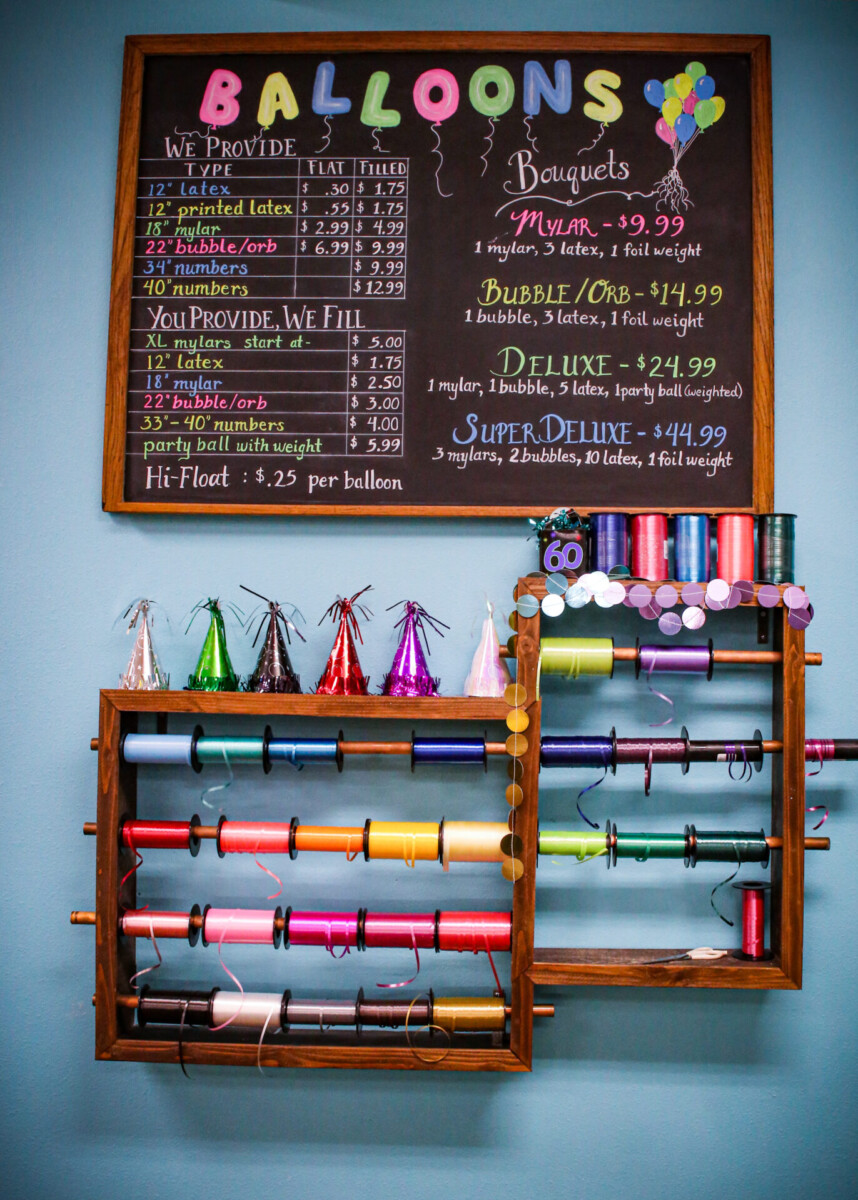 BALLOONS
WE PROVIDE
TYPE FLAT FILLED
12" latex $ .30 $ 1.75
12" printed latex $ .55 $ 1.75
18" mylar $ 2.99 $ 4.99
22" bubble/orb $ 6.99 $ 9.99
34" numbers $ 9.99
40" numbers $ 12.99
YOU PROVIDE, WE FILL
XL mylars start at- $ 5.00
12" latex $ 1.75
18" mylar $ 2.50
22" bubble/orb $ 3.00
33"- 40" numbers $ 4.00
party ball with weight $ 5.99
Hi-Float : $.25 per balloon
Bouquets
MYLAR - $9.99
1 mylar, 3 latex, 1 foil weight
BUBBLE/ORB - $14.99
1 bubble, 3 latex, 1 foil weight
DELUXE - $24.99
1 mylar, 1 bubble, 5 latex, 1 party ball (weighted)
SUPER DELUXE - $44.99
3 mylars, 2 bubbles, 10 latex, 1 foil weight
60